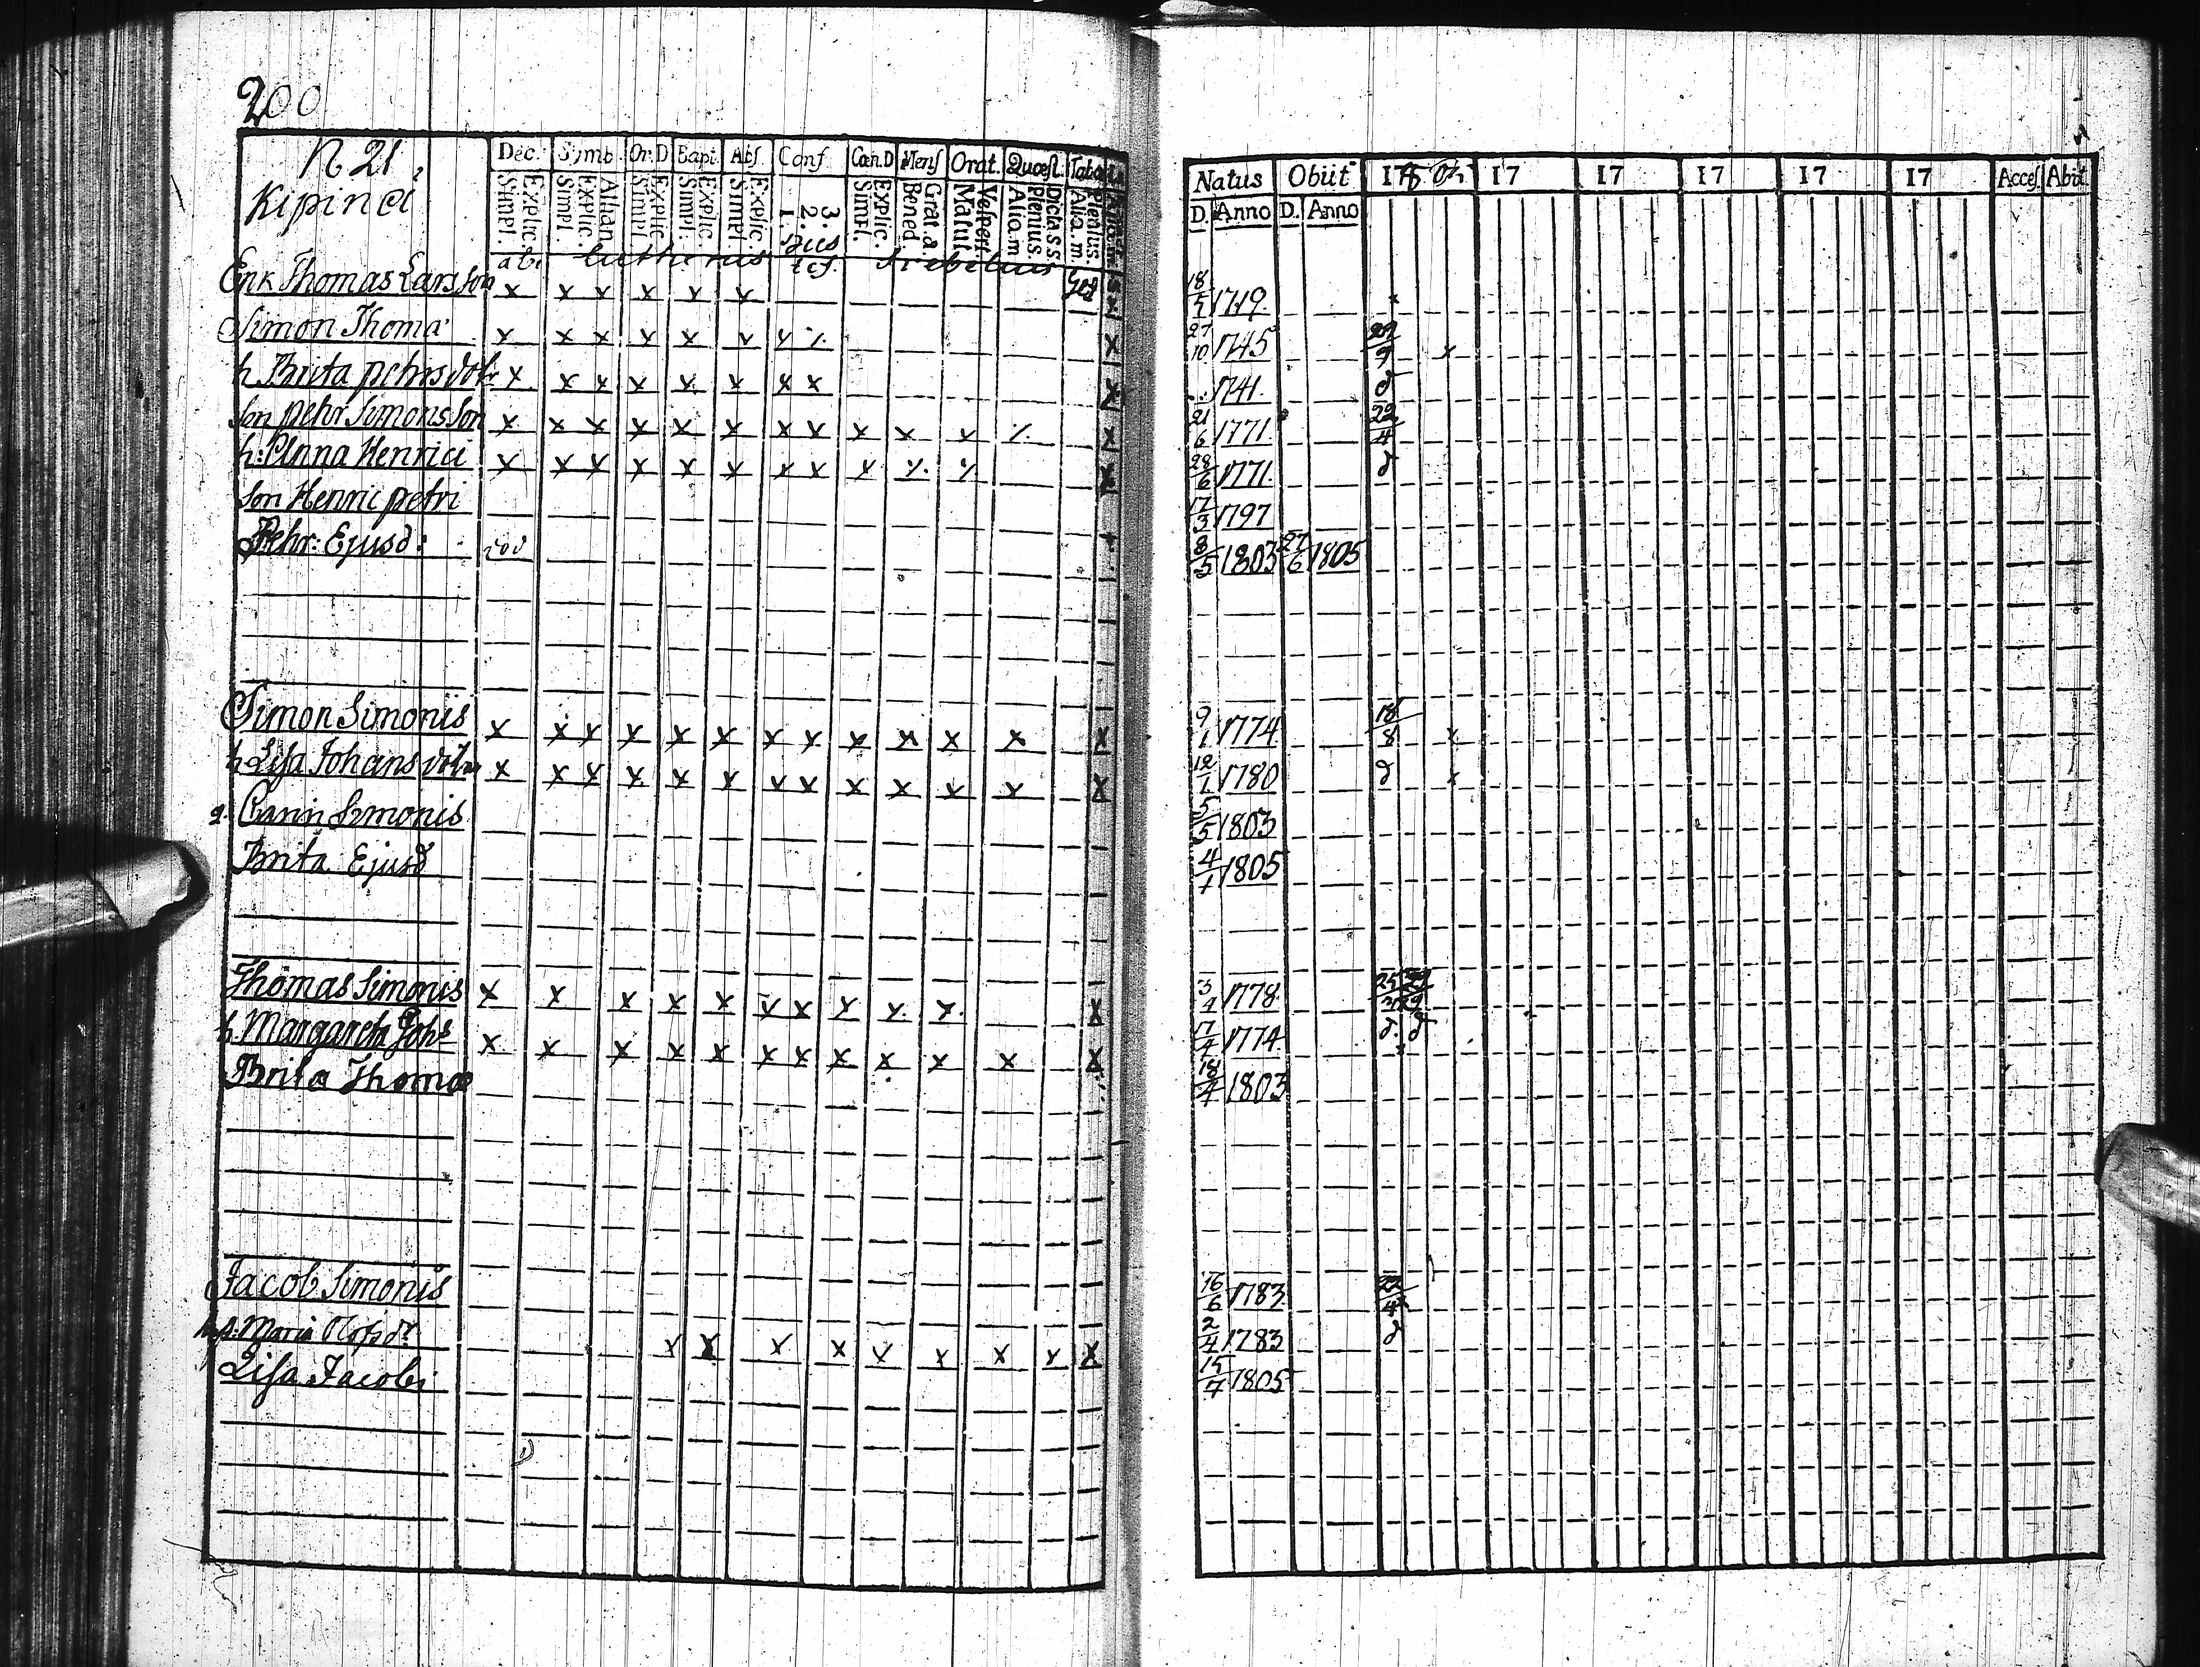 200
N 21.
Kipinei
Dec. Symb. Or. D Bapt. Abs. Conf. Cœn. D Mens. Orat. Quæst. Taba
Simpl. Explic. Simpl. Explic. Athan. Simpl. Explic. Simpl. Explic. Simpl. Explic. 1. 2. 3. Simpl. Explic. Bened. Grat. a. Matut. Vespert. Aliam Plenius. Dicta s. s. Alia. m. Plenius.
Natus Obiit 17 17 17 17 17 17 Acces. Abit.
D. Anno D. Anno
Enk Thomas Larsson x x x x x x 18/5 1719.
Simon Thomæ x x x x x x x x 27/10 1745 x
h. Brita Pehrsdotr x x x x x x x x x 1741.
Son Pehr Simonsson x x x x x x x x x x x x 21/6 1771. 22/4
h: Anna Henrici x x x x x x x x x x x x 28/6 1771.
Son Henric Petri 17/3 1797
Pehr: Ejusd: 8/5 1803 27/6 1805
Simon Simonis x x x x x x x x x x x x x 9/1 1774 18/8 x
h Lisa Johansdotr x x x x x x x x x x x x x 12/1 1780 x
Carin Simonis 5/5 1803
Brita Ejusd 4/1 1805
Thomas Simonis x x x x x x x x x x x 3/4 1778.
h. Margareta Johs x x x x x x x x x x x x 17/4 1774
Brita Thomæ 18/4 1803
Jacob Simonis 16/6 1783 22/4
h. Maria Olofsdr x x x x x x x x x 2/4 1783
Lisa Jacobi 15/7 1805